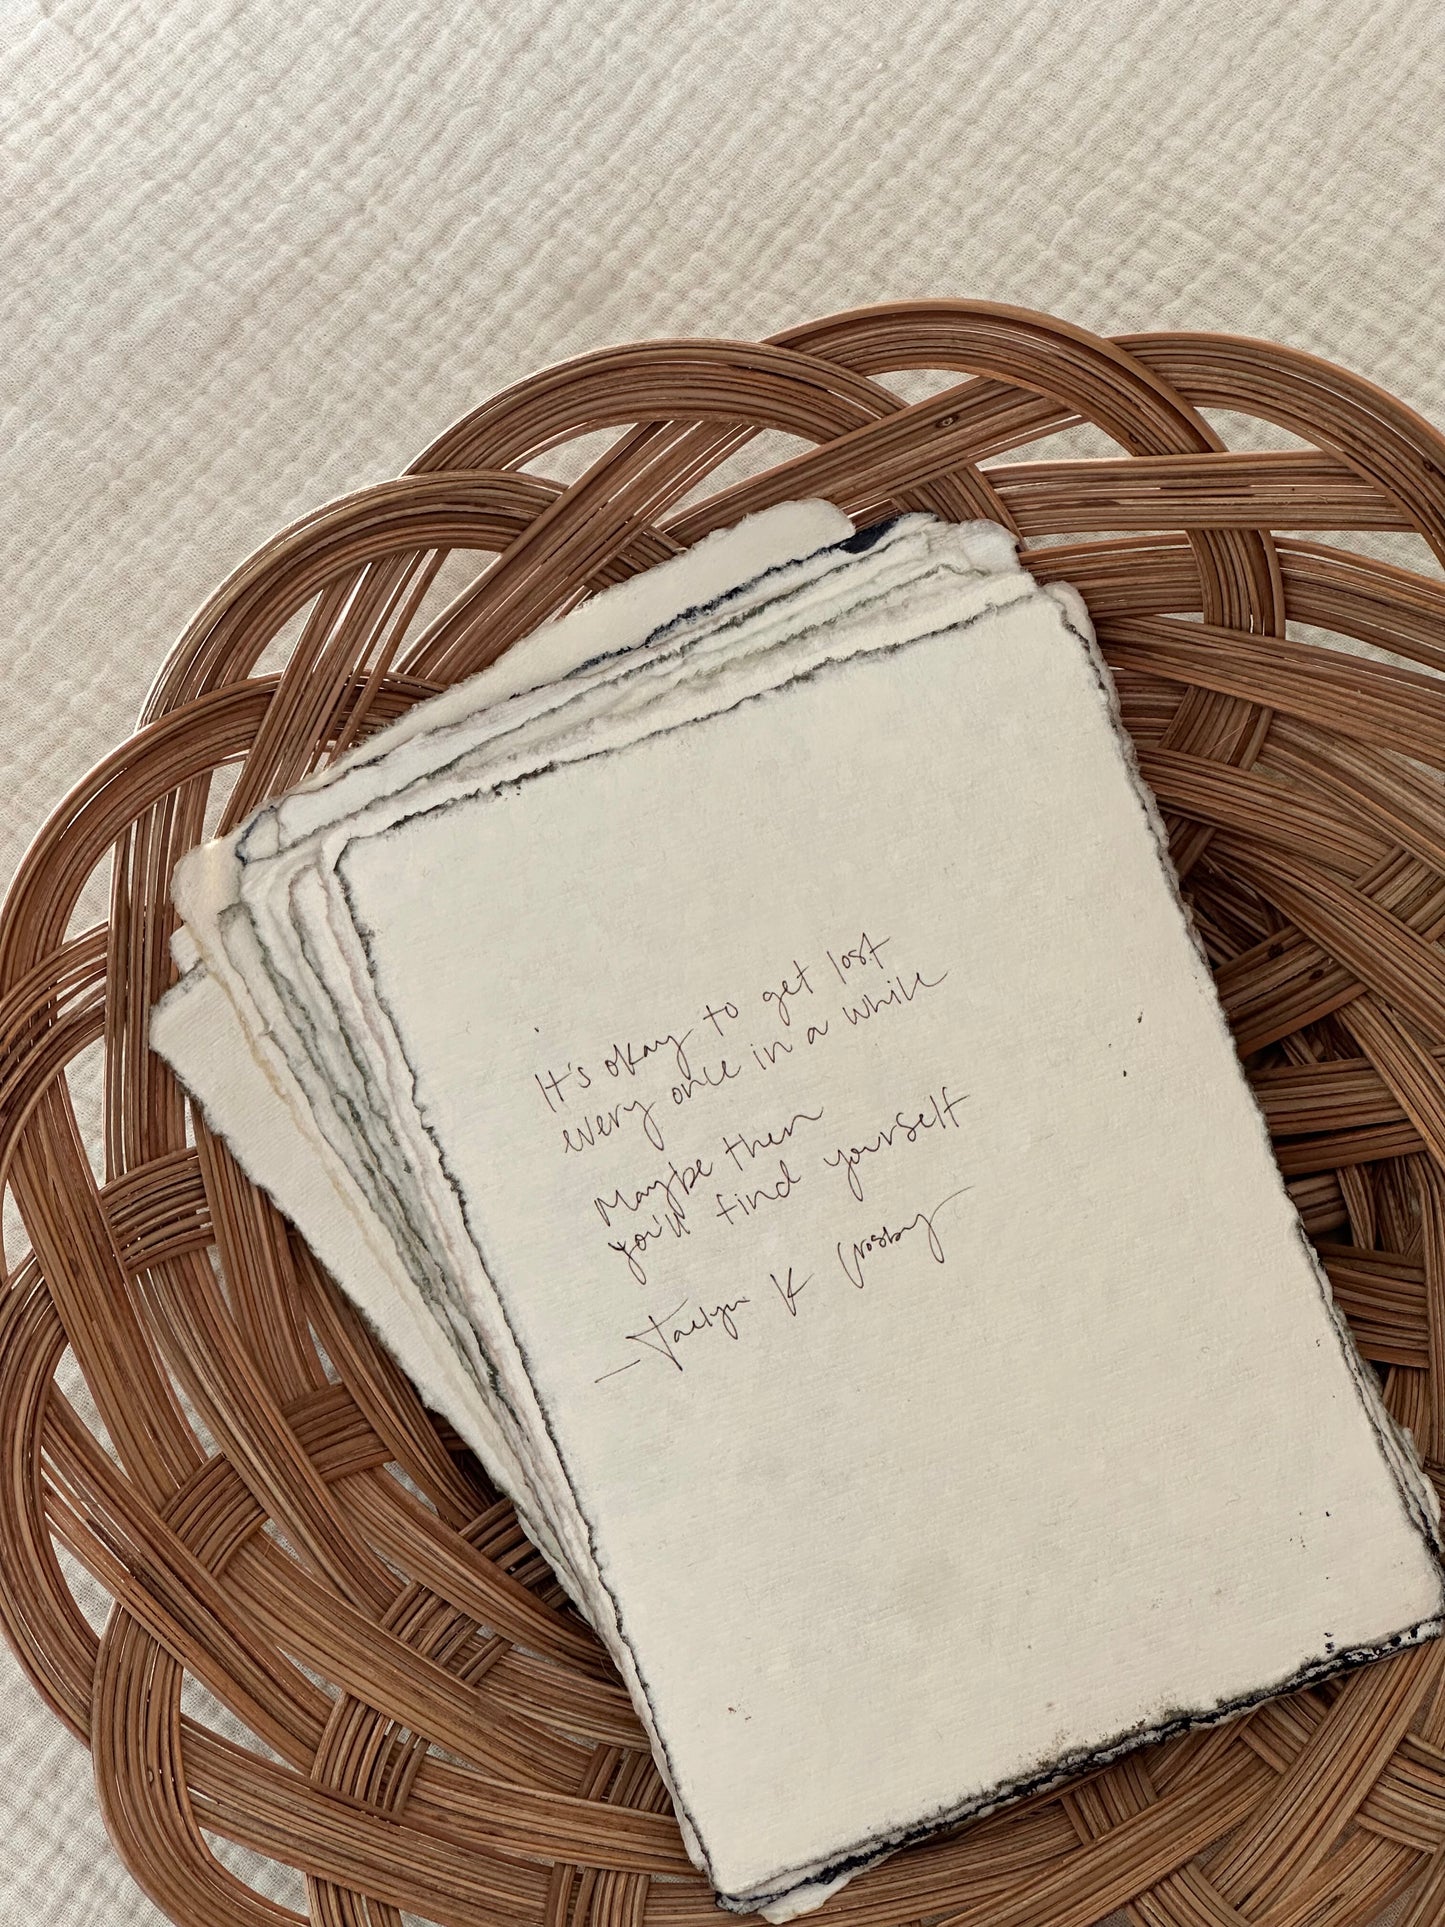 It's okay to get lost
every once in a while
Maybe then
you'll find yourself
— Taelyn K Crosby